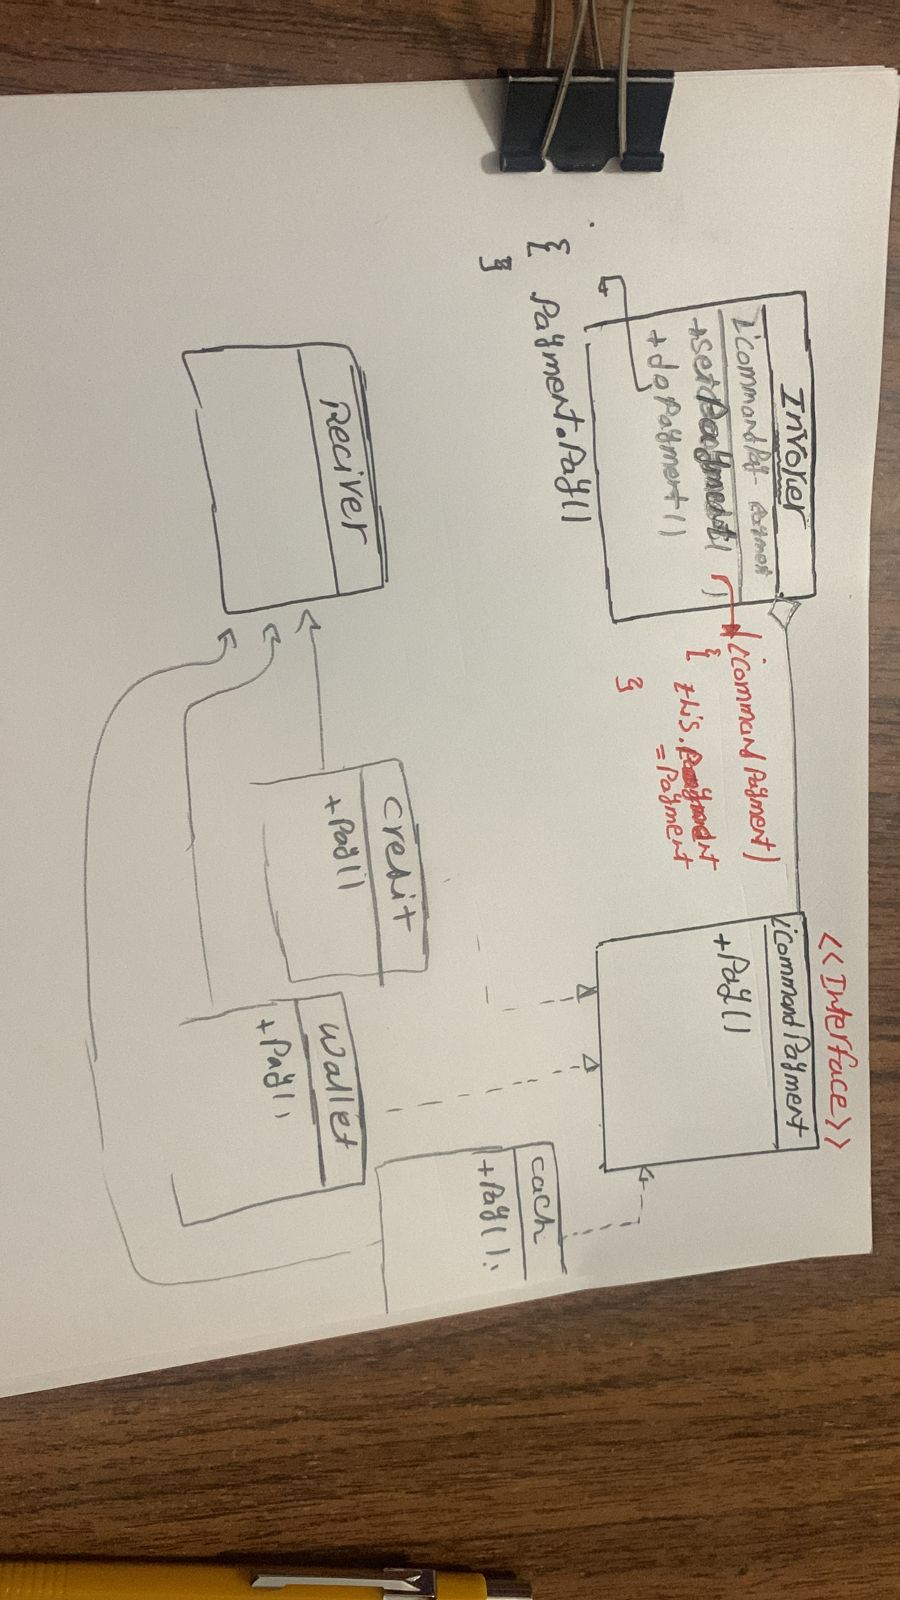 Invoker
icommandPay- payment
+setPayment(
)
+doPayment()
{ Payment.Pay()
}
(icommandPayment)
{ this.Payment
=Payment
}
<<Interface>>
icommandPayment
+Pay()
Reciver
Credit
+Pay()
wallet
+Pay()
cach
+Pay();